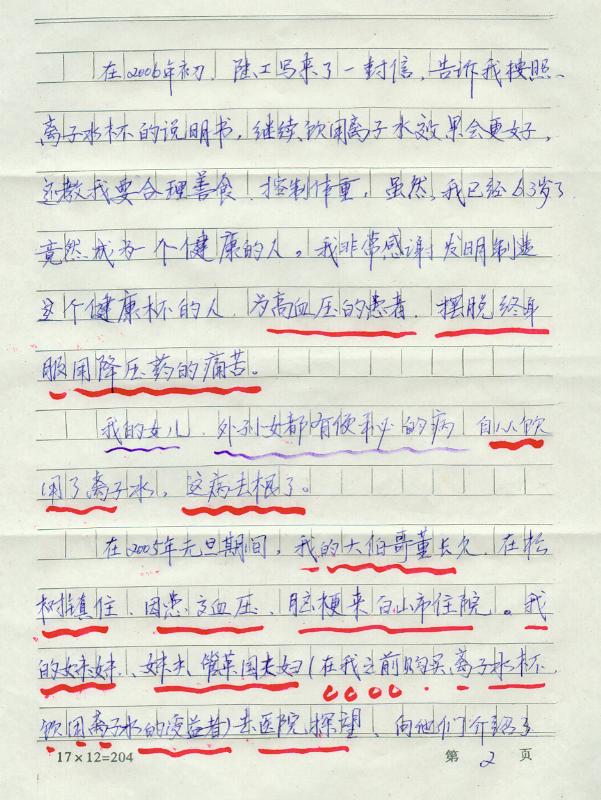 在2006年初，陆工写来了一封信，告诉我按照、
离子水杯的说明书，继续饮用离子水效果会更好，
还教我要合理善食、控制体重，虽然，我已经63岁了
竟然成为一个健康的人。我非常感谢发明制造
这个健康杯的人，为高血压的患者，摆脱终身
服用降压药的痛苦。
我的女儿、外孙女都有便秘的病 自从饮
用了离子水，这病去根了。
在2005年元旦期间，我的大伯哥董长久，在松
树镇住、因患高血压、脑梗来白山市住院。我
的妹妹、妹夫、管革国夫妇（在我之前购买离子水杯、
饮用离子水的受益者）去医院探望、向他们介绍了
17×12=204
第 2 页